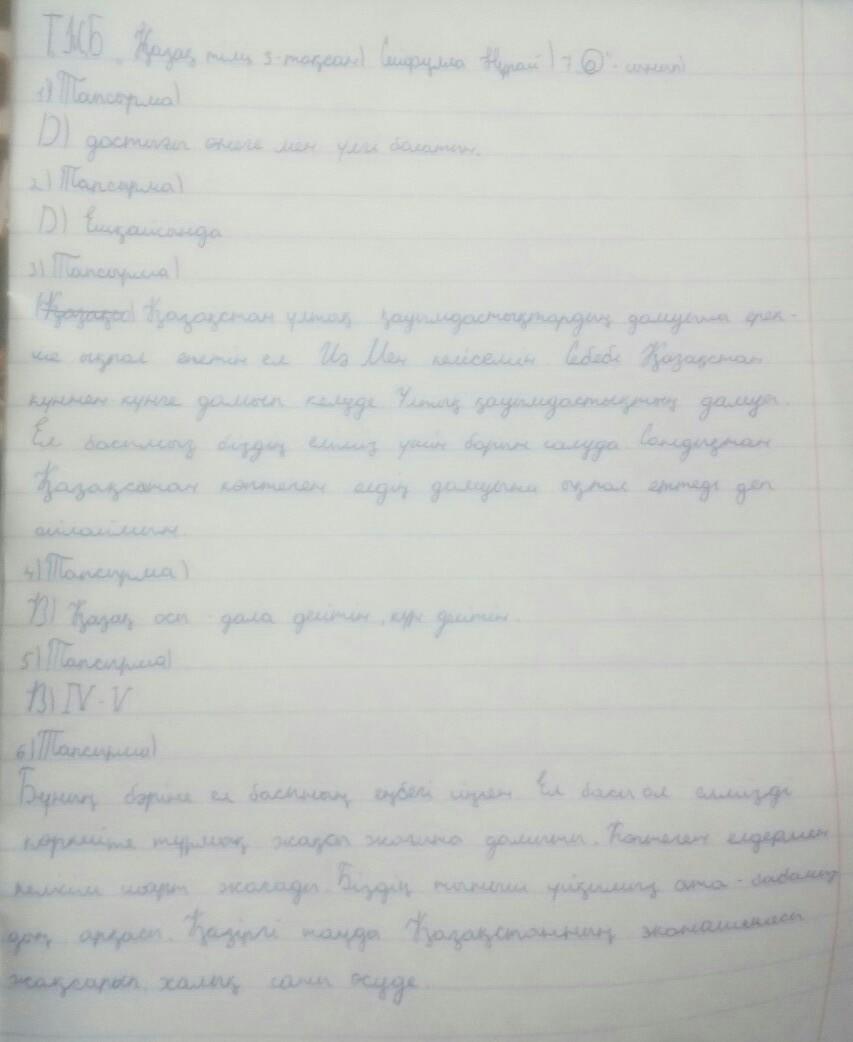 ТЖБ Қазақ тілі 3-тоқсан) Сейфулла Нұрай) 7 "а"-сынып)
1) Тапсырма)
D) достығы өнеге мен үлгі болатын.
2) Тапсырма)
D) Ешқайсында
3) Тапсырма)
Қазақстан ұлттық қауымдастықтардың дамуына ерек-
ше ықпал ететін ел Мен келісемін Себебі Қазақстан
күннен-күнге дамып келуде Ұлттық қауымдастықтың дамуы.
Ел басымыз біздің еліміз үшін барын салуда Сондықтан
Қазақстан көптеген елдің дамуына ықпал еттеді деп
ойлаймын.
4) Тапсырма)
B) Қазақ осы дала дейтін, күй дейтін.
5) Тапсырма)
B) IV-V
6) Тапсырма)
Бұның бәріне ел басының еңбегі сіңген Ел басы ол елімізді
көркейте тұрмық жақсы жағына Көптеген елдермен
келісім шарт жасады. Біздің тыныш ұйқымыз ата-бабамыз
дың арқасы. Қазіргі таңда Қазақстанның экономикасы
жақсарып, халық саны өсуде.